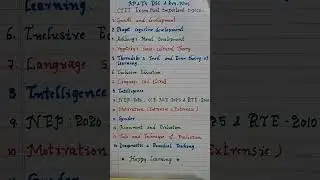 AP & TS DSC & Dec-2024
CTET Exam Most Important topics
1. Growth and development
2. Piaget cognitive development
3. Kohlberg's Moral Development
4. Vygotsky's Socio-cultural Theory
5. Thorndike's Trail and Error theory of Learning
6. Inclusive Education
7. Language and thought
8. Intelligence
9. NEP-2020, NCF-2005 & RTE-2010
10. Motivation (Intrinsic & Extrinsic)
11. Gender
12. Assessment and Evaluation
13. Tools and Techniques of Evaluation
14. Diagnostic & Remedial Teaching
* Happy Learning *
Learning.
6. Inclusive E
7. Language
8. Intelligen
9. NEP: 2020
10. Motivation
5 & RTE-2010
Extrinsic)